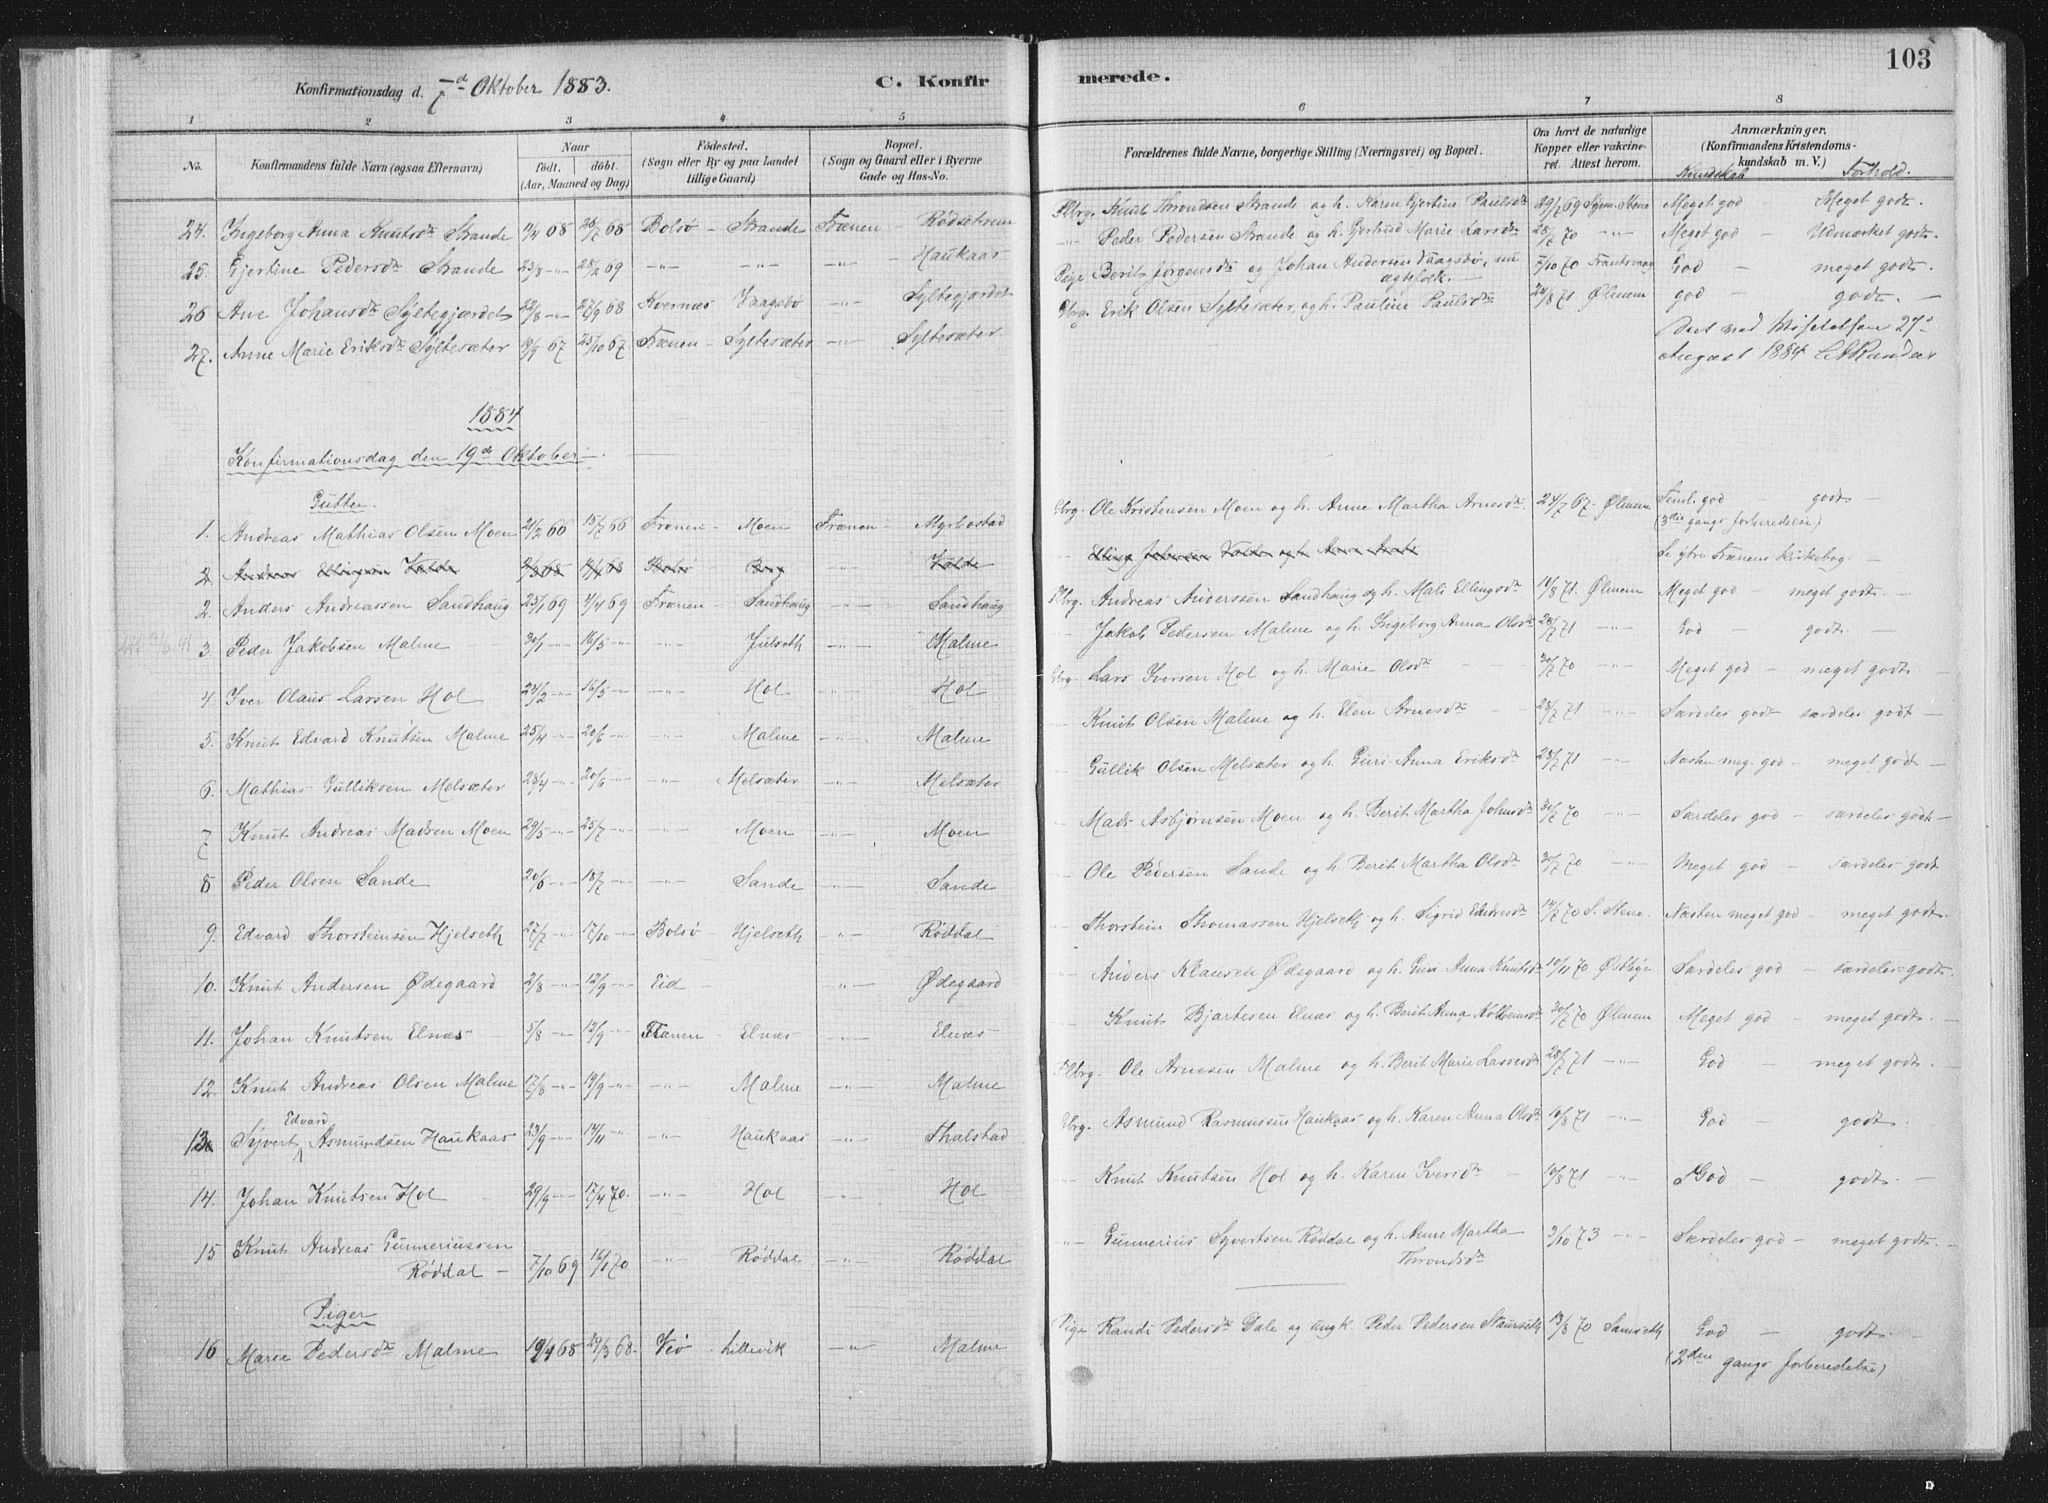 103
Konfirmationsdag d. 7d Oktober 1883.
C. Konfirmerede.
1 2 3 4 5 6 7 8
No. Konfirmandens fulde Navn (ogsaa Efternavn) Naar født. døbt. (Aar, Maaned og Dag) Fødested. (Sogn eller By og paa Landet tillige Gaard) Bopæl. (Sogn og Gaard eller i Byerne Gade og Hus-No. Forældrenes fulde Navne, borgerlige Stilling (Næringsvei) og Bopæl. Om havt de naturlige Kopper eller vakcineret. Attest herom. Anmærkninger. (Konfirmandens Kristendomskundskab m. V.) Kundskab Forhold.
24. Ingeborg Anna Knutsdtr Strande 11/4 68 26/7 68 Bolsø - Strande Frænen - Rødsetrem Plbrg. Knut Throndsen Strande og h. Karen Gjertine Paulsdtr 29/7 69 Meget god Meget godt.
25. Gjertine Pedersdtr Strande 23/8 -"- 28/2 69 -"- -"- -"- Haukaas -"- Peder Pedersen Strande og h. Gjertrud Marie Larsdtr 28/7 70 -"- Meget god - Udmærket godt.
26 Ane Johansdtr Syltegjærdet 22/8 -"- 27/9 68 Kvernæs Vaagsbø -"- Syltegjærdet Pige Berit Jørgensdtr og Johan Andersen Vaagsbø, nu ægtefolk. 7/10 70 Frantsvaag God - meget godt.
27. Anne Marie Eriksdtr Syltesæter 19/9 67 25/10 67 Frænen - Syltesæter -"- Syltesæter Gbrg. Erik Olsen Syltesæter, og h. Pauline Paulsdtr 24/8 71 Ølmem god - godt. -
Set ved Visitatsen 27de August 1884
1884
Konfirmationsdag den 19d Oktober
Gutter.
1. Andreas Mathias Olsen Moen 21/2 66 15/7 66 Frænen - Moen Frænen - Myrbostad Gbrg. Ole Kristensen Moen og h. Anne Martha Arnesdtr 24/7 67. Ølmem Teml. god godt -
(3die gangs forberedelse)
2 Andreas Ellingsen Valde Bolsø Berg Valde Elling Johnsen Valde og h. Anne
Se ytre Frænens Kirkebog -
2. Anders Andreassen Sandhaug 25/1 69 4/4 69 Frænen - Sandhaug -"- Sandhaug Plbrg. Andreas Anderssen Sandhaug og h. Mali Ellingsdtr 10/8 71. Ølmem Meget god - meget godt. -
3. Peder Jakobsen Malme 30/1 -"- 16/5 -"- -"- Julseth -"- Malme -"- Jakob Pedersen Malme og h. Ingeborg Anna Olsdtr 28/7 71 -"- God - godt. -
4 Iver Olaus Larsen Hol 24/2 -"- 16/5 -"- -"- Hol -"- Hol Gbrg. Lars Iversen Hol og h. Marie Olsdtr 30/7 70 -"- Meget god - meget godt -
5. Knut Edvard Knutsen Malme 25/4 -"- 20/6 -"- -"- Malme -"- Malme -"- Knut Olsen Malme og h. Elen Arnesdtr 28/7 71 -"- Særdeles god særdeles godt -
6. Mathias Gulliksen Melsæter 28/4 -"- 20/6 -"- -"- Melsæter -"- Melsæter -"- Gullik Olsen Melsæter og h. Guri Anna Eriksdtr 28/7 71 -"- Næsten meg. god - meget godt -
7 Knut Andreas Madsen Moen 29/5 -"- 25/7 -"- -"- Moen -"- Moen -"- Mads Asbjørnsen Moen og h. Berit Martha Johnsdtr 30/7 70 -"- Særdeles god - særdeles godt -
8 Peder Olsen Sande 20/6 -"- 18/7 -"- -"- Sande -"- Sande -"- Ole Pedersen Sande og h. Berit Martha Olsdtr 30/7 70 -"- Meget god - særdeles godt
9. Edvard Thorsteinsen Hjelseth 27/7 -"- 17/10 -"- Bolsø - Hjelseth -"- Røddal -"- Thorstein Thomassen Hjelseth og h. Sigrid 14/7 70 S. Stene. Næsten meget god - meget godt.
10. Knut Andersen Ødegaard 2/8 -"- 12/9 -"- Eid - -"- Ødegaard -"- Anders Klausen Ødegaard og h. Guri Anna Knutsdtr 10/11 70 Særdeles god - særdeles godt.
11. Johan Knutsen Elnæs 5/8 -"- 12/9 -"- Frænen - Elnæs -"- Elnæs -"- Knut Bjartesen Elnæs og h. Berit Anna Kolbensdtr 30/7 70 Ølmem Meget god - meget godt. -
12. Knut Andreas Olsen Malme 17/8 -"- 19/9 -"- -"- Malme -"- Malme Plbrg. Ole Arnesen Malme og h. Berit Marie Lassesdtr 28/7 71 -"- God - meget godt.
13. Syvert Edvard Asmundsen Haukaas 23/9 -"- 14/11 -"- Haukaas -"- Thalstad Gbrg. Asmund Rasmussen Haukaas og h. Karen Anna Olsdtr 10/8 71 -"- God - godt. -
14. Johan Knutsen Hol 29/9 -"- 17/4 70. -"- Hol -"- Hol -"- Knut Knutsen Hol og h. Karen Iversdtr - 10/8 71 -"- God - godt. -
15 Knut Andreas Gunneriussen Røddal - 7/10 69 16/1 70 -"- Røddal -"- Røddal -"- Gunnerius Syvertsen Røddal og h. Anne Martha Throndsdtr 3/10 73 -"- Særdeles god - meget godt. -
Piger
16 Marie Pedersdtr Malme 68 29/3 68. Veø - Lillevik -"- Malme Pige Randi Pedersdtr Dale og ungk. Peder Pedersen Staurseth 13/8 70 Samseth God - godt. -
(2den gangs forberedelse)